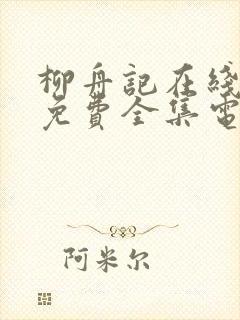 柳舟記在綫
免費全集電
阿米尔